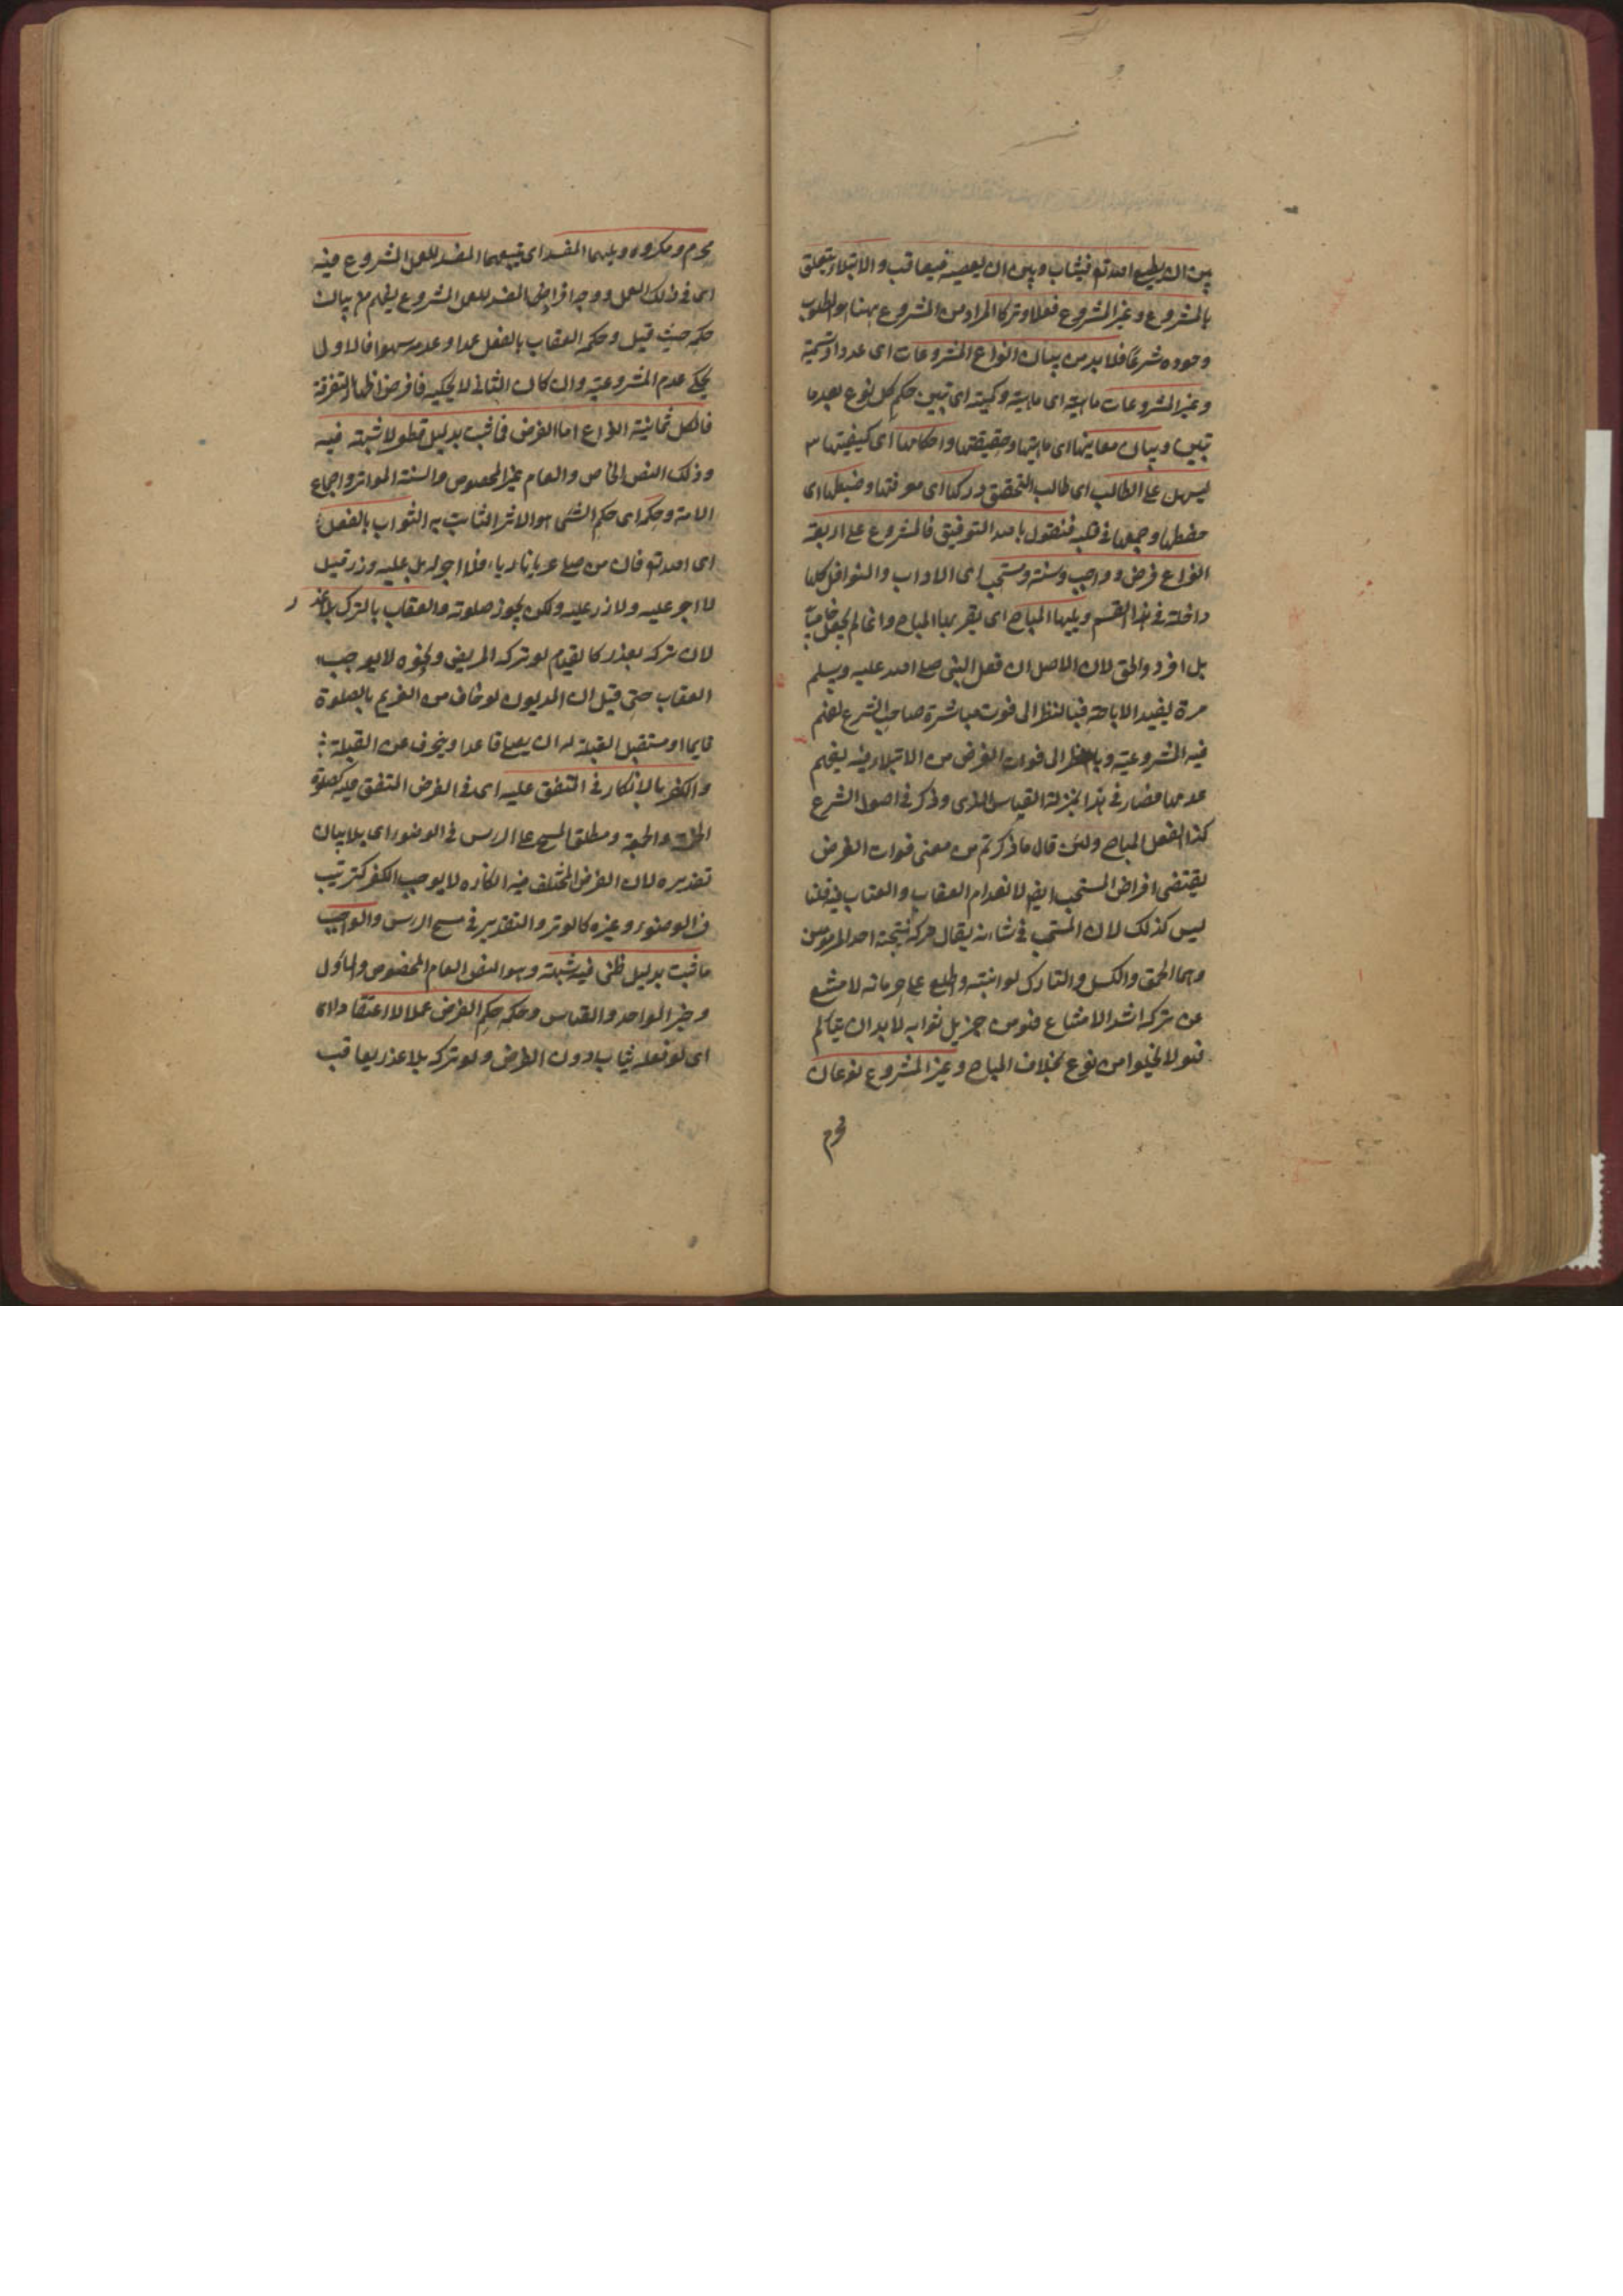 بين ان يطيع الله تع فيثاب وبين ان يعصيه فيعاقب والابتلاء يتعلق
بالمشروع وغير المشروع فعلا وتركا المراد من المشروع ههنا هو المطلوب
وجوده شرعا فلا بد من بيان انواع المشروعات اى عددا وتسمية
وغير المشروعات ماهيته اى ماهية وكمية اى تبين حكم كل نوع بعد ما
تبين وبيان معانيها اى ماهيتها وحقيقتها واحكامها اى كيفيتها
ليسهل على الطالب اى طالب التحقق دركها اى معرفتها وضبطها اى
حفظها وجمعها فى قلبه فنقول بالله التوفيق فالمشروع على اربعة
انواع فرض وواجب وسنة ومستحب اى الاداب والنوافل كلها
داخلة فى هذا القسم ويليها المباح اى يقربها المباح وانما لم يجعل
بل افرد والحق لان الاصل ان فعل النبى صلى الله عليه وسلم
مرة ليفيد الاباحة فبالنظر الى فوت مباشرة صاحب الشرع يفهم
فيه المشروعية وبالنظر الى فوات الغرض من الابتلاء فيه يفهم
عدمها فصار فى هذا بمنزلة القياس الذى وذكر فى اصول الشرع
كذا الفعل المباح ولئن قال ما ذكرتم من معنى فوات الغرض
يقتضى افراض المستحب ايض لانعدام العقاب والعتاب فيه قلنا
ليس كذلك لان المستحب فى شانه يقال تركه نتيجة احد الامرين
وهما الحمق والكسل والتارك لو انبته واطلع على حرمانه لامتنع
عن تركه اشد الامتناع فنوم من جزيل ثوابه لا بد ان يتالم
فهو لا يخلوا من نوع بخلاف المباح وغير المشروع نوعان
محرم
محرم ومكروه ويليهما المفسد اى يتبعهما المفسد للعمل المشروع فيه
اى فى ذلك العمل ووجه افراض المفسد للعمل المشروع يفهم من بيان
حكمه حيث قيل وحكمه العقاب بالفعل عمدا وعدمه سهوا فالاولى
يحكى عدم المشروعية وان كان الثانى لا يحكيه فافرض اظهارا لتفرقة
فالكل ثمانية انواع اما الفرض فما ثبت بدليل قطعى لا شبهة فيه
وذلك النص الخاص والعام غير المخصوص والسنة المتواتر واجماع
الامة وحكمه اى حكم الشئ هو الاثر الثابت به الثواب بالفعل
اى الله تع فان من صلى عريانا رياء فلا اجر له بل عليه وزر قيل
لا اجر عليه ولا وزر عليه ولكن يجوز صلوته والعقاب بالترك بلا عذر
لان تركه بعذر كالقيام لو تركه المريض ونحوه لا يوجب
العقاب حتى قيل ان المديون لو خاف من الغريم بالصلوة
قايما او مستقبل القبلة له ان يصلى قاعدا وينحرف عن القبلة
والكفر بالانكار فى المتفق عليه اى فى الفرض المتفق عليه كصلوة
الخمسة والجمعة ومطلق المسح على الراس فى الوضوء اى بلا بيان
تقديره لان الفرض المختلف فيه انكاره لا يوجب الكفر كترتيب
فى الوضوء وغيره كالوتر والتقدير فى مسح الراس والواجب
ما ثبت بدليل ظنى فيه شبهة وهو النص العام المخصوص والمأول
وخبر الواحد والقياس وحكمه حكم الفرض عملا لا اعتقادا لا
اى لو فعله يثاب دون الفرض ولو تركه بلا عذر يعاقب